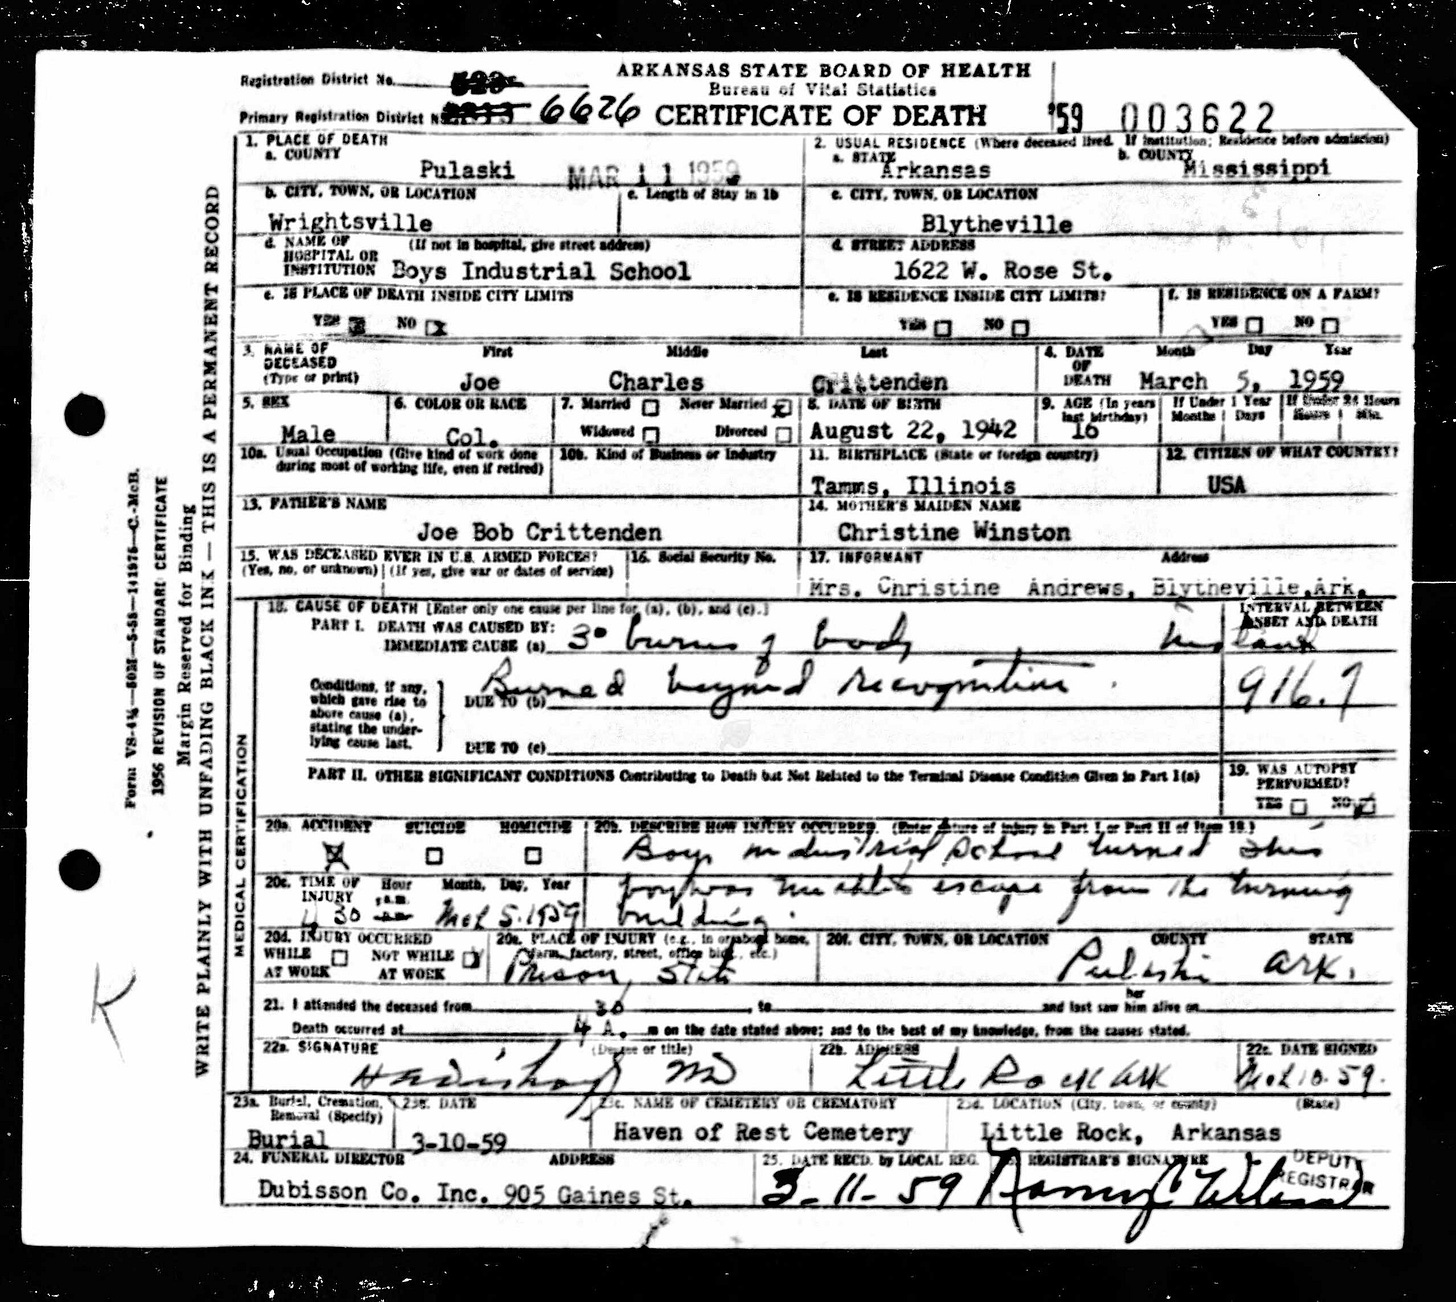 ARKANSAS STATE BOARD OF HEALTH
Bureau of Vital Statistics
CERTIFICATE OF DEATH
Registration District No.
Primary Registration District No. 6626
'59 003622
1. PLACE OF DEATH
a. COUNTY
Pulaski
MAR 11 1959
2. USUAL RESIDENCE (Where deceased lived. If institution; Residence before admission)
a. STATE
Arkansas
b. COUNTY
Mississippi
b. CITY, TOWN, OR LOCATION
Wrightsville
c. Length of Stay in 1b
c. CITY, TOWN, OR LOCATION
Blytheville
d. NAME OF HOSPITAL OR INSTITUTION
(If not in hospital, give street address)
Boys Industrial School
d. STREET ADDRESS
1622 W. Rose St.
e. IS PLACE OF DEATH INSIDE CITY LIMITS
YES NO x
e. IS RESIDENCE INSIDE CITY LIMITS?
YES NO
f. IS RESIDENCE ON A FARM?
YES NO
3. NAME OF DECEASED (Type or print)
First Middle Last
Joe Charles Crittenden
4. DATE OF DEATH
Month Day Year
March 5, 1959
5. SEX
Male
6. COLOR OR RACE
Col.
7. Married Never Married x
Widowed Divorced
8. DATE OF BIRTH
August 22, 1942
9. AGE (In years last birthday)
16
If Under 1 Year
Months Days
If Under 24 Hours
Hours Min.
10a. Usual Occupation (Give kind of work done during most of working life, even if retired)
10b. Kind of Business or Industry
11. BIRTHPLACE (State or foreign country)
Tamms, Illinois
12. CITIZEN OF WHAT COUNTRY?
USA
13. FATHER'S NAME
Joe Bob Crittenden
14. MOTHER'S MAIDEN NAME
Christine Winston
15. WAS DECEASED EVER IN U.S. ARMED FORCES?
(Yes, no, or unknown) (If yes, give war or dates of service)
16. Social Security No.
17. INFORMANT Address
Mrs. Christine Andrews, Blytheville, Ark.
18. CAUSE OF DEATH [Enter only one cause per line for (a), (b), and (c).]
INTERVAL BETWEEN ONSET AND DEATH
PART I. DEATH WAS CAUSED BY:
IMMEDIATE CAUSE (a) 3° burns of body
Conditions, if any, which gave rise to above cause (a), stating the underlying cause last.
DUE TO (b) Burned beyond recognition
916.7
DUE TO (c)
PART II. OTHER SIGNIFICANT CONDITIONS Contributing to Death but Not Related to the Terminal Disease Condition Given in Part I(a)
19. WAS AUTOPSY PERFORMED?
YES NO
20a. ACCIDENT SUICIDE HOMICIDE
20b. DESCRIBE HOW INJURY OCCURRED. (Enter nature of injury in Part I or Part II of Item 18.)
Boys industrial school burned this
boy was unable escape from the burning
building.
20c. TIME OF INJURY
Hour Month, Day, Year
a.m.
p.m.
4 30 Mch 5. 1959
20d. INJURY OCCURRED
WHILE AT WORK NOT WHILE AT WORK
20e. PLACE OF INJURY (e.g., in or about home, farm, factory, street, office bldg., etc.)
Prison, State
20f. CITY, TOWN, OR LOCATION COUNTY STATE
Pulaski Ark.
21. I attended the deceased from , to and last saw her him alive on
Death occurred at 4 30 A. m on the date stated above; and to the best of my knowledge, from the causes stated.
22a. SIGNATURE (Degree or title)
MD
22b. ADDRESS
Little Rock Ark
22c. DATE SIGNED
Mch 10. 59.
23a. Burial, Cremation, Removal (Specify)
Burial
23b. DATE
3-10-59
23c. NAME OF CEMETERY OR CREMATORY
Haven of Rest Cemetery
23d. LOCATION (City, town, or county) (State)
Little Rock, Arkansas
24. FUNERAL DIRECTOR ADDRESS
Dubisson Co. Inc. 905 Gaines St.
25. DATE RECD. by LOCAL REG.
3-11-59
REGISTRAR'S SIGNATURE
DEPUTY REGISTRAR
MEDICAL CERTIFICATION
WRITE PLAINLY WITH UNFADING BLACK INK — THIS IS A PERMANENT RECORD
Margin Reserved for Binding
1956 REVISION OF STANDARD CERTIFICATE
K